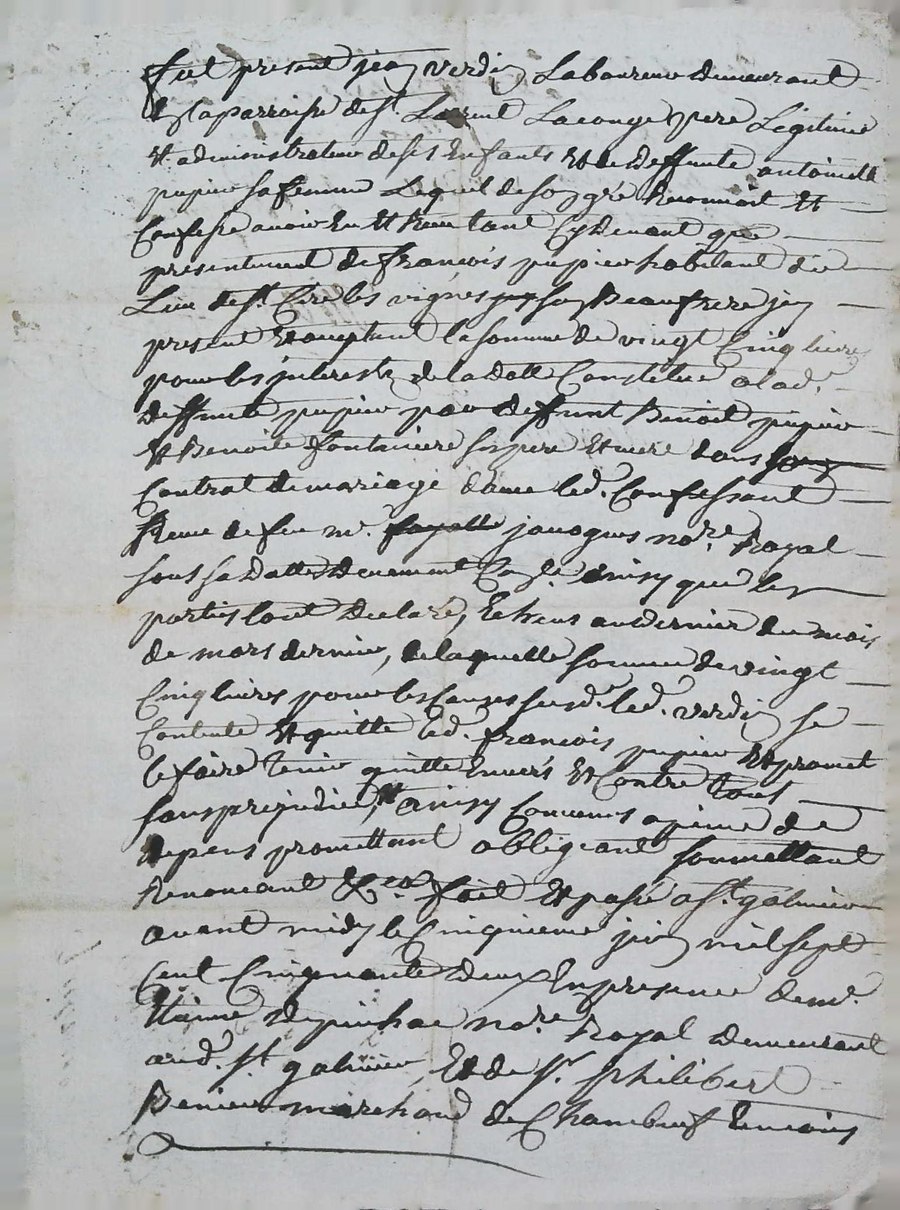 fut present jean verdier Laboureur demeurant
en la parroisse de St. Laurent Laconge pere Legitime
et administrateur de ses Enfants et de deffunte antoinette
pupier sa femme Lequel de son gré Reconnoit et
Confesse avoir Eu et Receu tant Cydevant que
presentement de françois pupier habitant du
Lieu de St. Cire les vignes son Beaufrere icy
present et acceptant la somme de vingt Cinq livres
pour les interests de la dotte Constituée a lad.
deffunte pupier par deffunt Benoit pupier
et Benoite fontaniere ses pere et mere dans son
Contrat de mariage d'avec led. Confessant
Receu de feu mr. fayolle janogues nore. Royal
sous sa datte duement Conle. ainsy que les
parties lont declaré, Echeus audernier du mois
de mars dernier, de laquelle somme de vingt
Cinq livres pour les Causes susd. led. verdier se
Contente et quitte led. françois pupier et promet
le faire tenir quitte Envers et Contre tous
sans prejudice, et ainsy Convenus apeine de
depens promettant obligeant soumettant
Renonceant &ca. fait et passé a St. galmier
avant midy le Cinquieme juin mil sept
Cent Cinquante deux En presence de mr.
Etienne depinhac nore. Royal demeurant
aud. St galmier, Et de Sr. philibert
marchand de Chambeuf temoins